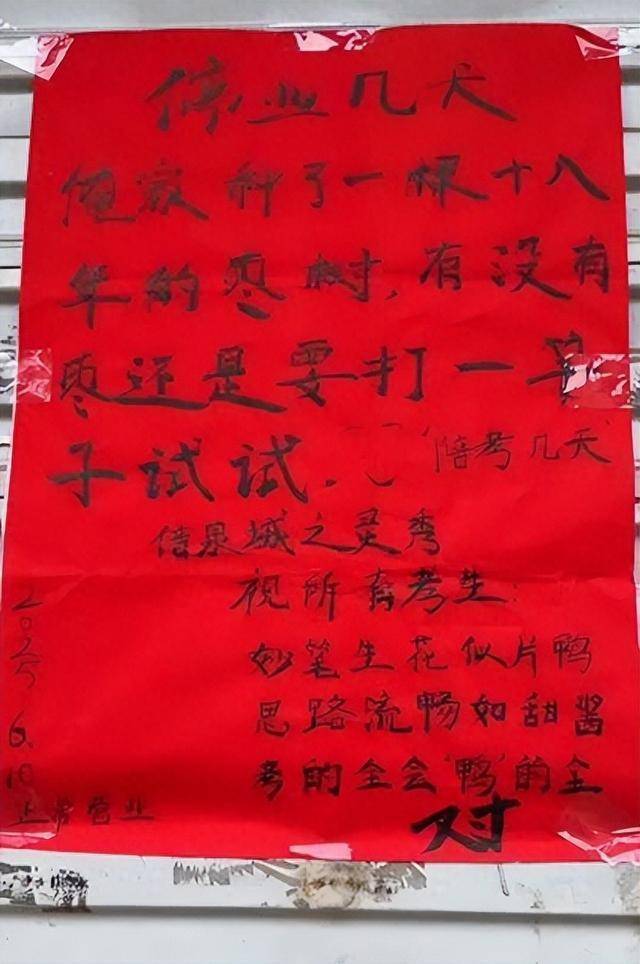 停业几天
俺家种了一棵十八
年的枣树,有没有
枣还是要打一竿
子试试.
陪考几天
借泉城之灵秀
祝所有考生:
妙笔生花似片鸭
思路流畅如甜酱
考的全会"鸭"的全
对
2025.6.10
正常营业